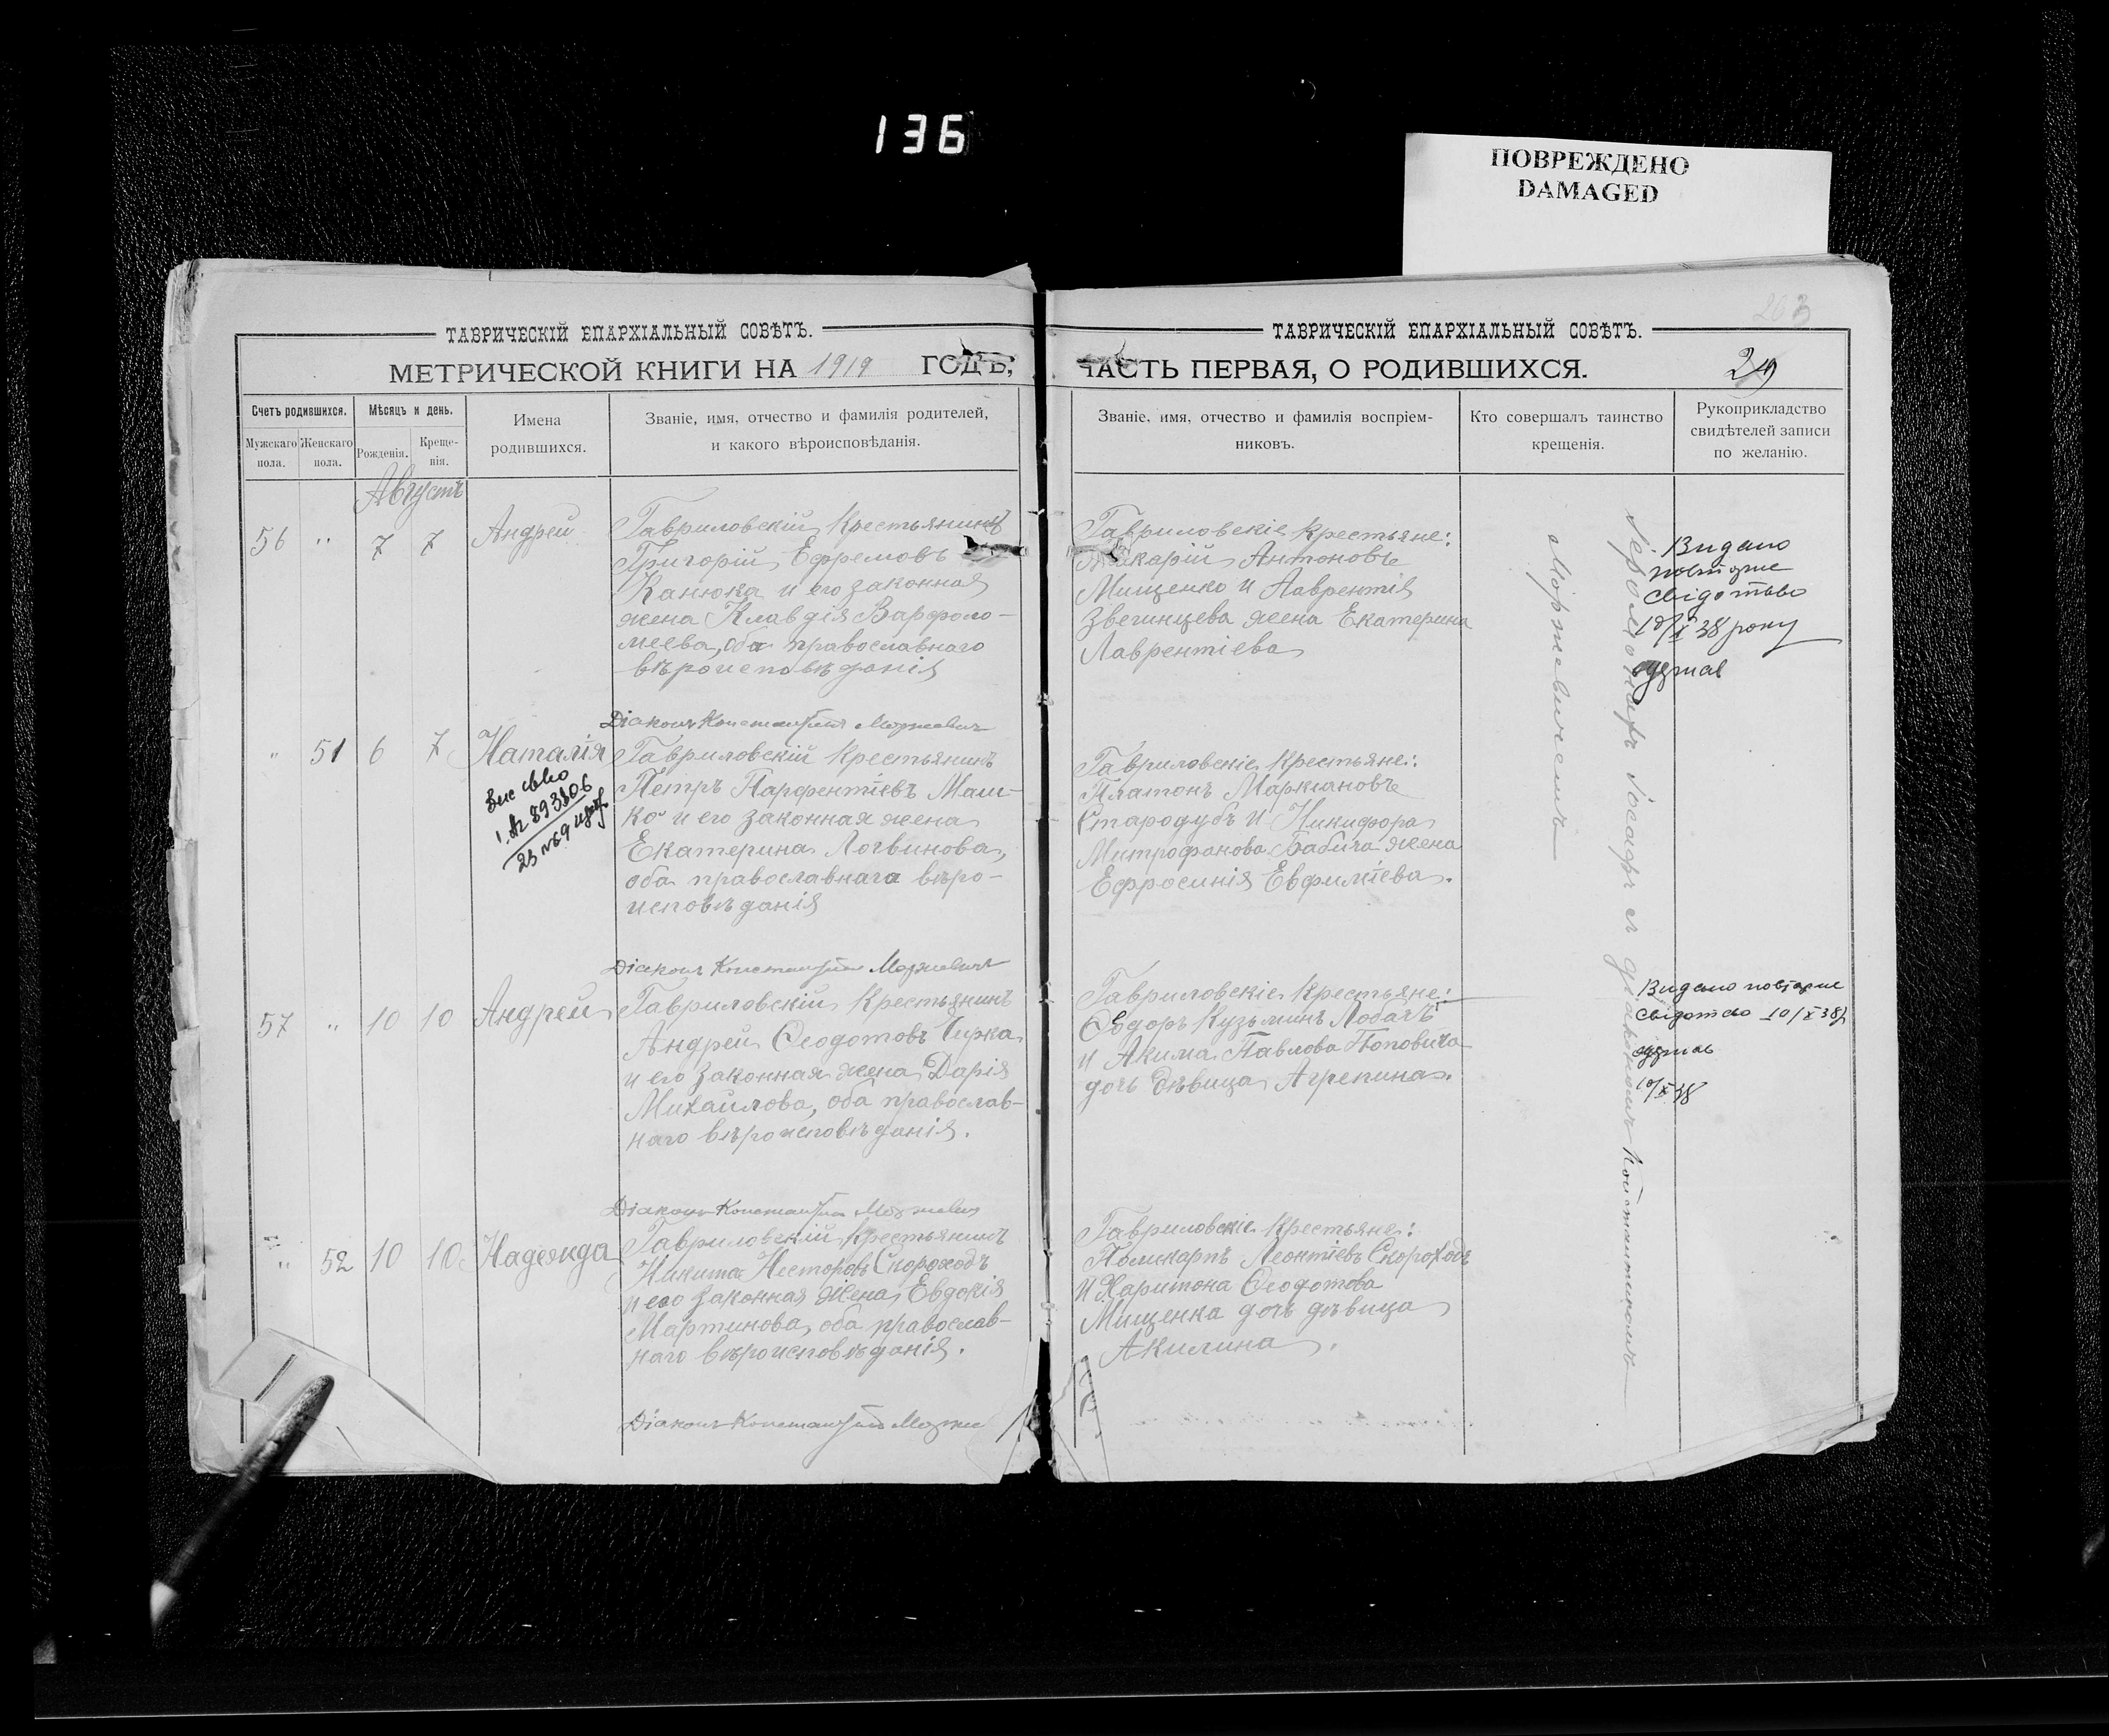 136
ПОВРЕЖДЕНО
DAMAGED
ТАВРИЧЕСКІЙ ЕПАРХІАЛЬНЫЙ СОВѢТЪ.
МЕТРИЧЕСКОЙ КНИГИ НА 1919 ГОДЪ,
Счетъ родившихся.
Мѣсяцъ и день.
Имена родившихся.
Званіе, имя, отчество и фамилія родителей,
и какого вѣроисповѣданія.
Мужскаго пола.
Женскаго пола.
Рожденія.
Креще-
нія.
Августъ
56 " 7 7 Андрей
Гавриловскій крестьянинъ
Григорій Ефремовъ
Канюка и его законная
жена Клавдія Варфоло-
меева, оба православнаго
вѣроисповѣданія
Діаконъ Константинъ Моржевичъ
" 51 6 7 Наталія
893306
Гавриловскій крестьянинъ
Петръ Парфентіевъ Маш-
ко и его законная жена
Екатерина Логвинова,
оба православнаго вѣро-
исповѣданія
Діаконъ Константинъ Моржевичъ
57 " 10 10 Андрей
Гавриловскій крестьянинъ
Андрей Ѳеодотовъ Чирка
и его законная жена Дарія
Михайлова, оба православ-
наго вѣроисповѣданія.
Діаконъ Константинъ Моржевич
" 52 10 10 Надежда
Гавриловскій крестьянинъ
Никита Несторовъ Скороходъ
и его законная жена Евдокія
Мартинова, оба православ-
наго вѣроисповѣданія.
Діаконъ Константинъ Морже
203
ТАВРИЧЕСКІЙ ЕПАРХІАЛЬНЫЙ СОВѢТЪ.
ЧАСТЬ ПЕРВАЯ, О РОДИВШИХСЯ.
29
Званіе, имя, отчество и фамилія воспріем-
никовъ.
Кто совершалъ таинство
крещенія.
Рукоприкладство
свидѣтелей записи
по желанію.
Гавриловскіе крестьяне:
Макарій Антоновъ
Мищенко и Лаврентія
Звегинцева жена Екатерина
Лаврентіева
Гавриловскіе крестьяне:
Платонъ Маркіановъ
Стародубъ и Никифора
Митрофанова Бабича жена
Ефросинія Евфиміева.
Гавриловскіе крестьяне:
Ѳеодоръ Кузьминъ Лобачъ
и Акима Павлова Поповича
дочь дѣвица Агрепина.
Гавриловскіе крестьяне:
Поликарпъ Леонтіевъ Скороходъ
и Харитона Ѳеодотова
Мищенка дочь дѣвица
Акилина.
Іеромонахъ Іосафъ съ діакономъ Константиномъ
Моржевичемъ
Видано
повторне
свідоцтво
10/X 38 року
одержав
Видано повторне
свідоцтво 10/X 38р
одержав
10/X 38